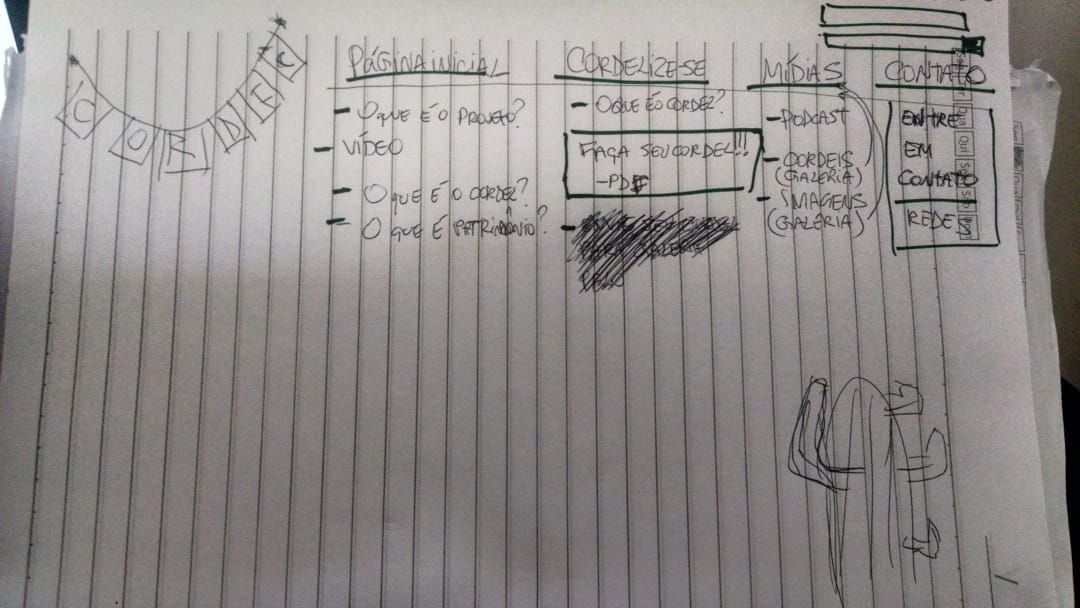 CORDEL
PÁGINA INICIAL
- O QUE É O PROJETO?
- VÍDEO
- O QUE É O CORDEL?
- O QUE É PATRIMÔNIO?
CORDELIZE-SE
- O QUE É O CORDEL?
FAÇA SEU CORDEL!!
- PDF
MÍDIAS
- PODCAST
- CORDEIS
(GALERIA)
- IMAGENS
(GALERIA)
CONTATO
ENTRE
EM
CONTATO
REDES